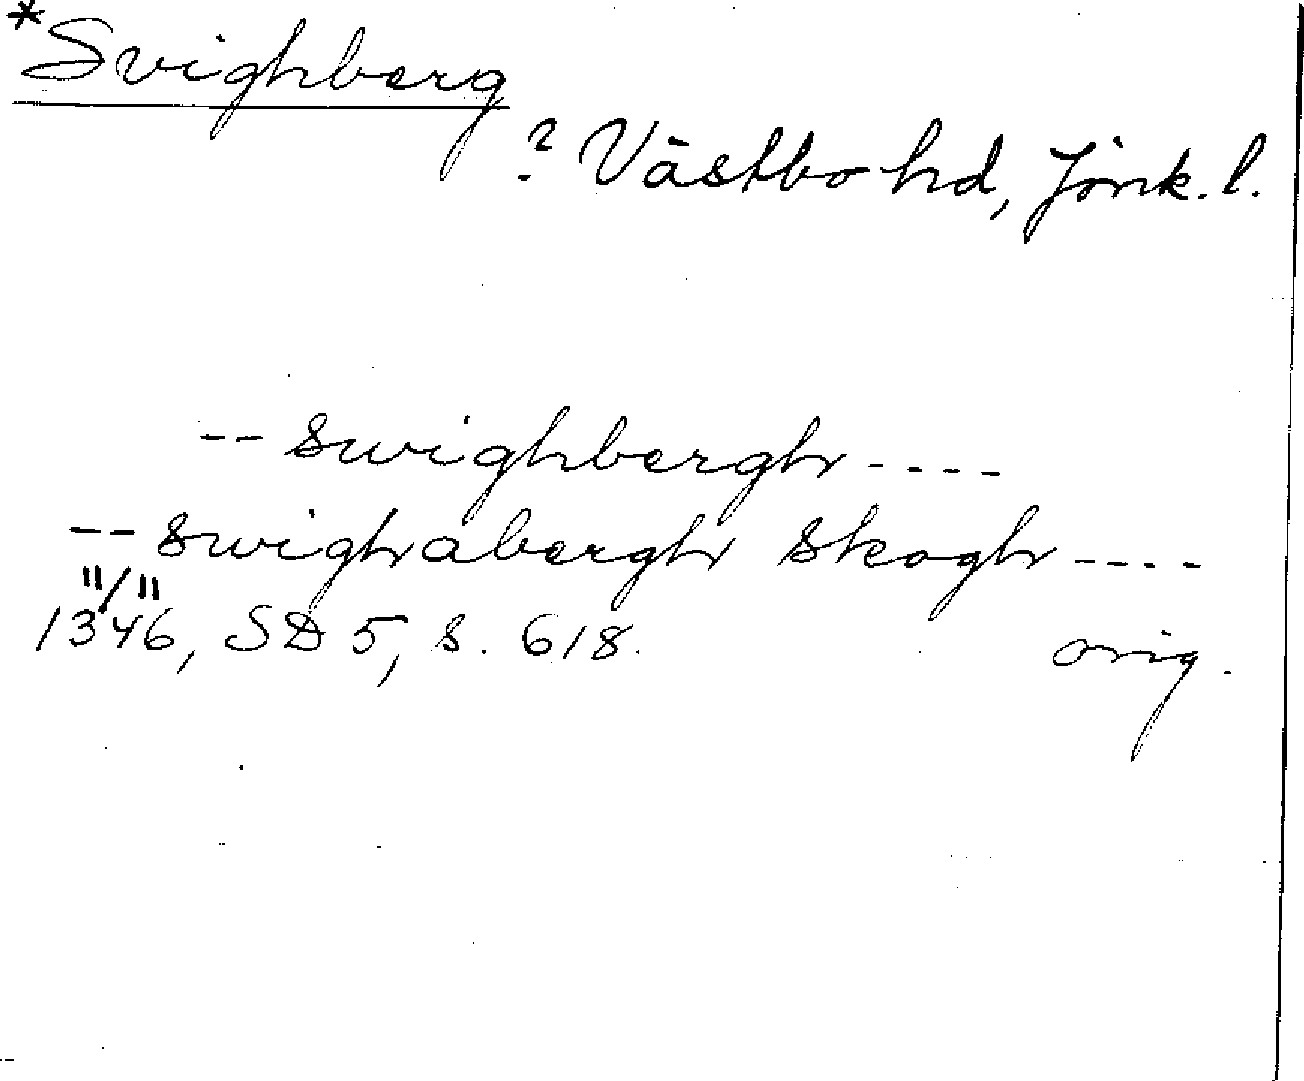 *Svighberg
? Västbo hd, Jönk. l.
-- swighbergh ----
-- swighabergh skogh ----
11/11
1346, SD 5, s. 618.
orig.